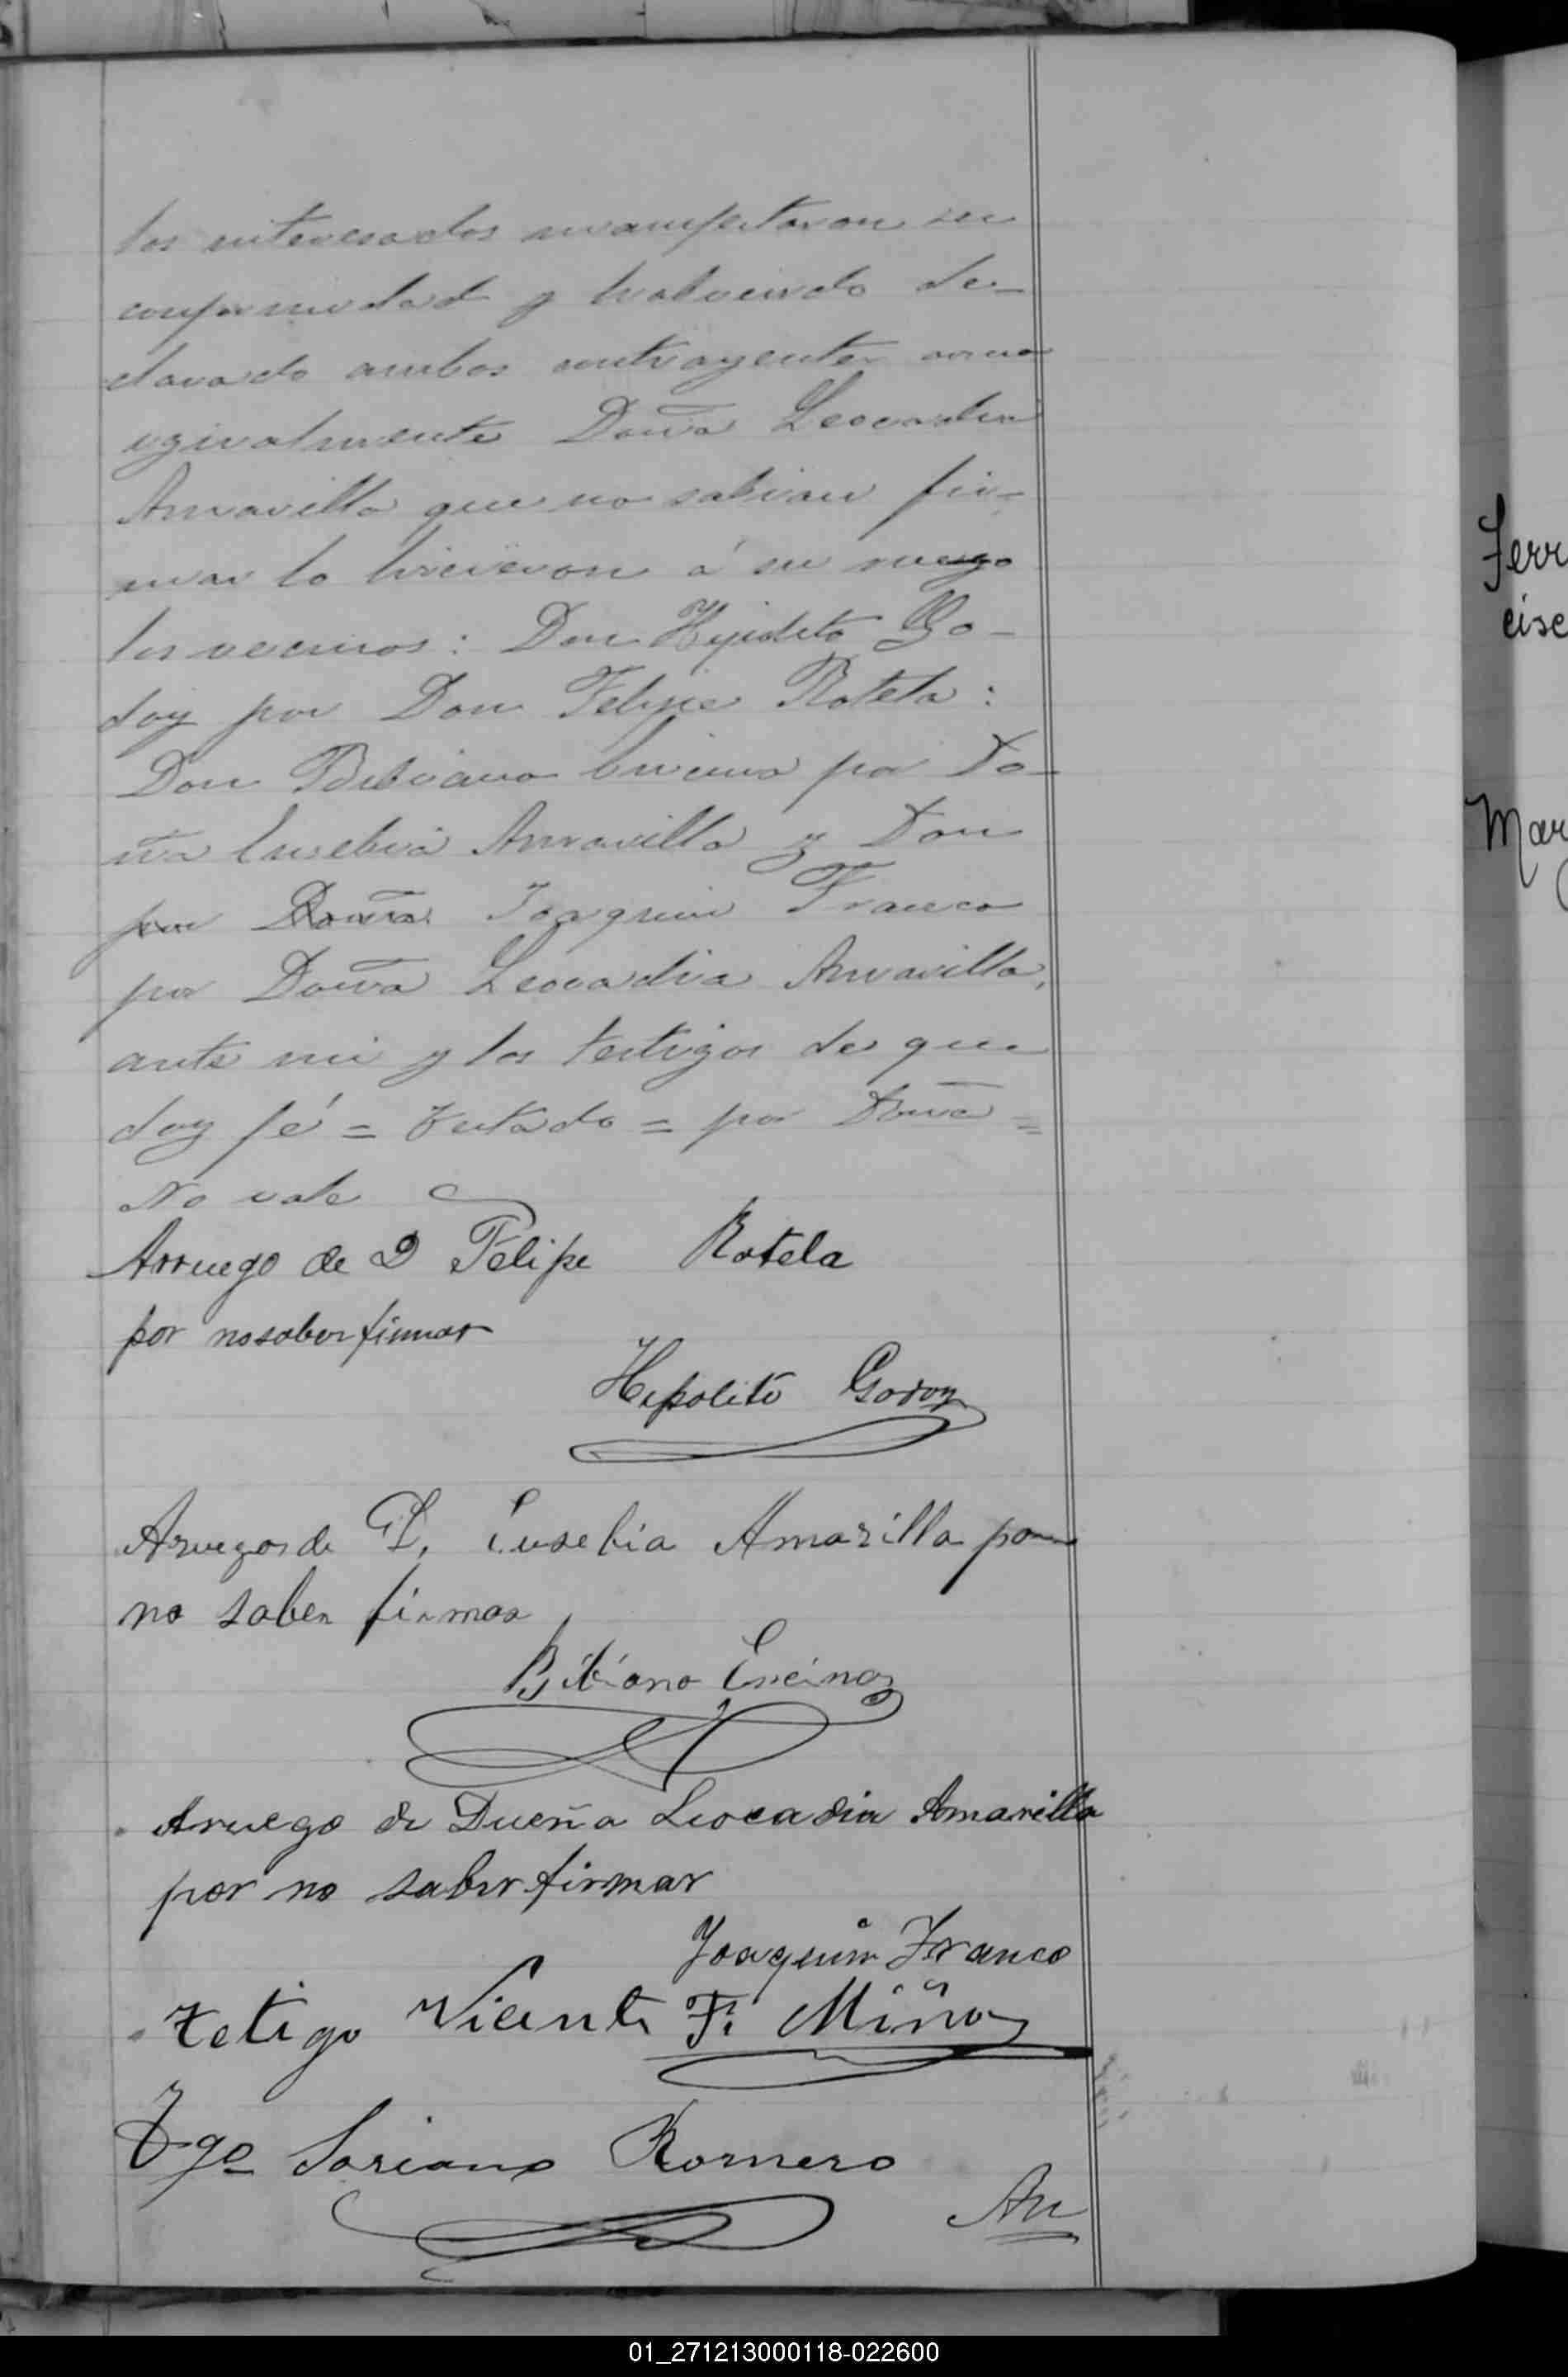 los interesados manifestaron su
conformidad y habiendo de-
clarado ambos contrayentes como
igualmente Doña Leocadia
Amarilla que no sabian fir-
mar lo hicieron á su ruego
los vecinos: Don Hipolito Go-
doy por Don Felipe Rotela:
Don Bibiano Encina por Do-
ña Eusebia Amarilla y Don
por Doña Joaquin Franco
por Doña Leocadia Amarilla,
ante mi y los testigos de que
doy fé = Testado = por Doña =
No vale
Arruego de D Felipe Rotela
por no saber firmar
Hipolito Godoy
Aruegos de D. Eusebia Amarilla por
no saber firmar
Bibiano Encina
Aruego de Dueña Leocadia Amarilla
por no saber firmar
Joaquin Franco
Tetigo Vicente F. Miño
Tgo Soriano Romero
An
Ferr
cisc
Mar
01_271213000118-022600